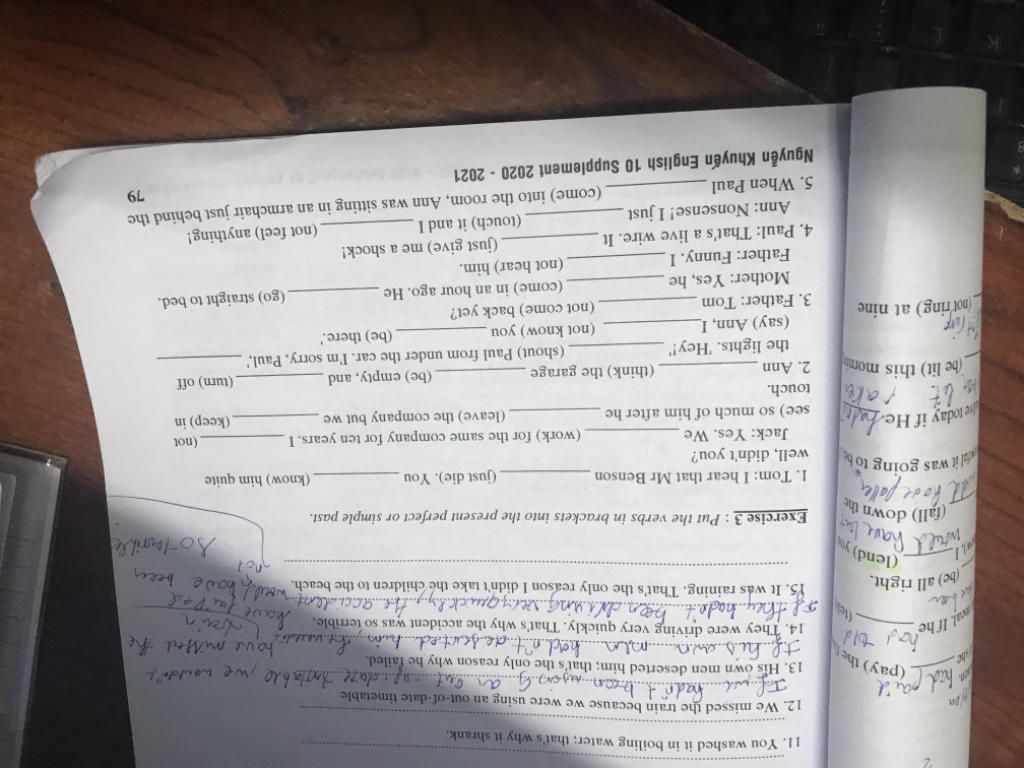 11. You washed it in boiling water; that's why it shrank.
12. We missed the train because we were using an out-of-date timetable
If we hadn't been using an out-of-date timetable we wouldn't
have missed the
train
13. His own men deserted him; that's the only reason why he failed.
If his own men hadn't deserted him, he wouldn't
have failed
14. They were driving very quickly. That's why the accident was so terrible.
If they hadn't been driving very quickly the accident would have been
not
so terrible
15. It was raining. That's the only reason I didn't take the children to the beach.
Exercise 3 : Put the verbs in brackets into the present perfect or simple past.
1. Tom: I hear that Mr Benson __________ (just die). You __________ (know) him quite
well, didn't you?
Jack: Yes. We __________ (work) for the same company for ten years. I __________ (not
see) so much of him after he __________ (leave) the company but we __________ (keep) in
touch.
2. Ann __________ (think) the garage __________ (be) empty, and __________ (turn) off
the lights. 'Hey!' __________ (shout) Paul from under the car. 'I'm sorry, Paul,' __________
(say) Ann, I __________ (not know) you __________ (be) there.'
3. Father: Tom __________ (not come) back yet?
Mother: Yes, he __________ (come) in an hour ago. He __________ (go) straight to bed.
Father: Funny. I __________ (not hear) him.
4. Paul: That's a live wire. It __________ (just give) me a shock!
Ann: Nonsense! I just __________ (touch) it and I __________ (not feel) anything!
5. When Paul __________ (come) into the room, Ann was sitting in an armchair just behind the
Nguyễn Khuyến English 10 Supplement 2020 - 2021
79
had paid
(pay) the
had told
meal. If he
(be) all right.
(lend) you
would have lent
(fall) down the
have fallen
it was going to be
today if He
(be lit) this
(not ring) at nine